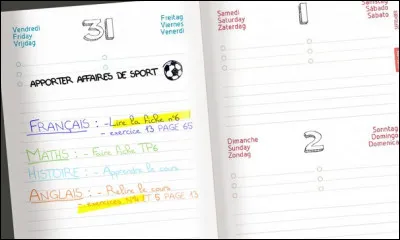 Vendredi
Friday
Vrijdag
31
Freitag
Viernes
Venerdi
APPORTER AFFAIRES DE SPORT
FRANÇAIS : - Lire la fiche n°6
- exercice 13 PAGE 65
MATHS : - Faire fiche TP6
HISTOIRE : - Apprendre le cours
ANGLAIS : - Relire le cours
- exercices N°4 ET 5 PAGE 13
Samedi
Saturday
Zaterdag
1
Samstag
Sábado
Sabato
Dimanche
Sunday
Zondag
2
Sonntag
Domingo
Domenica